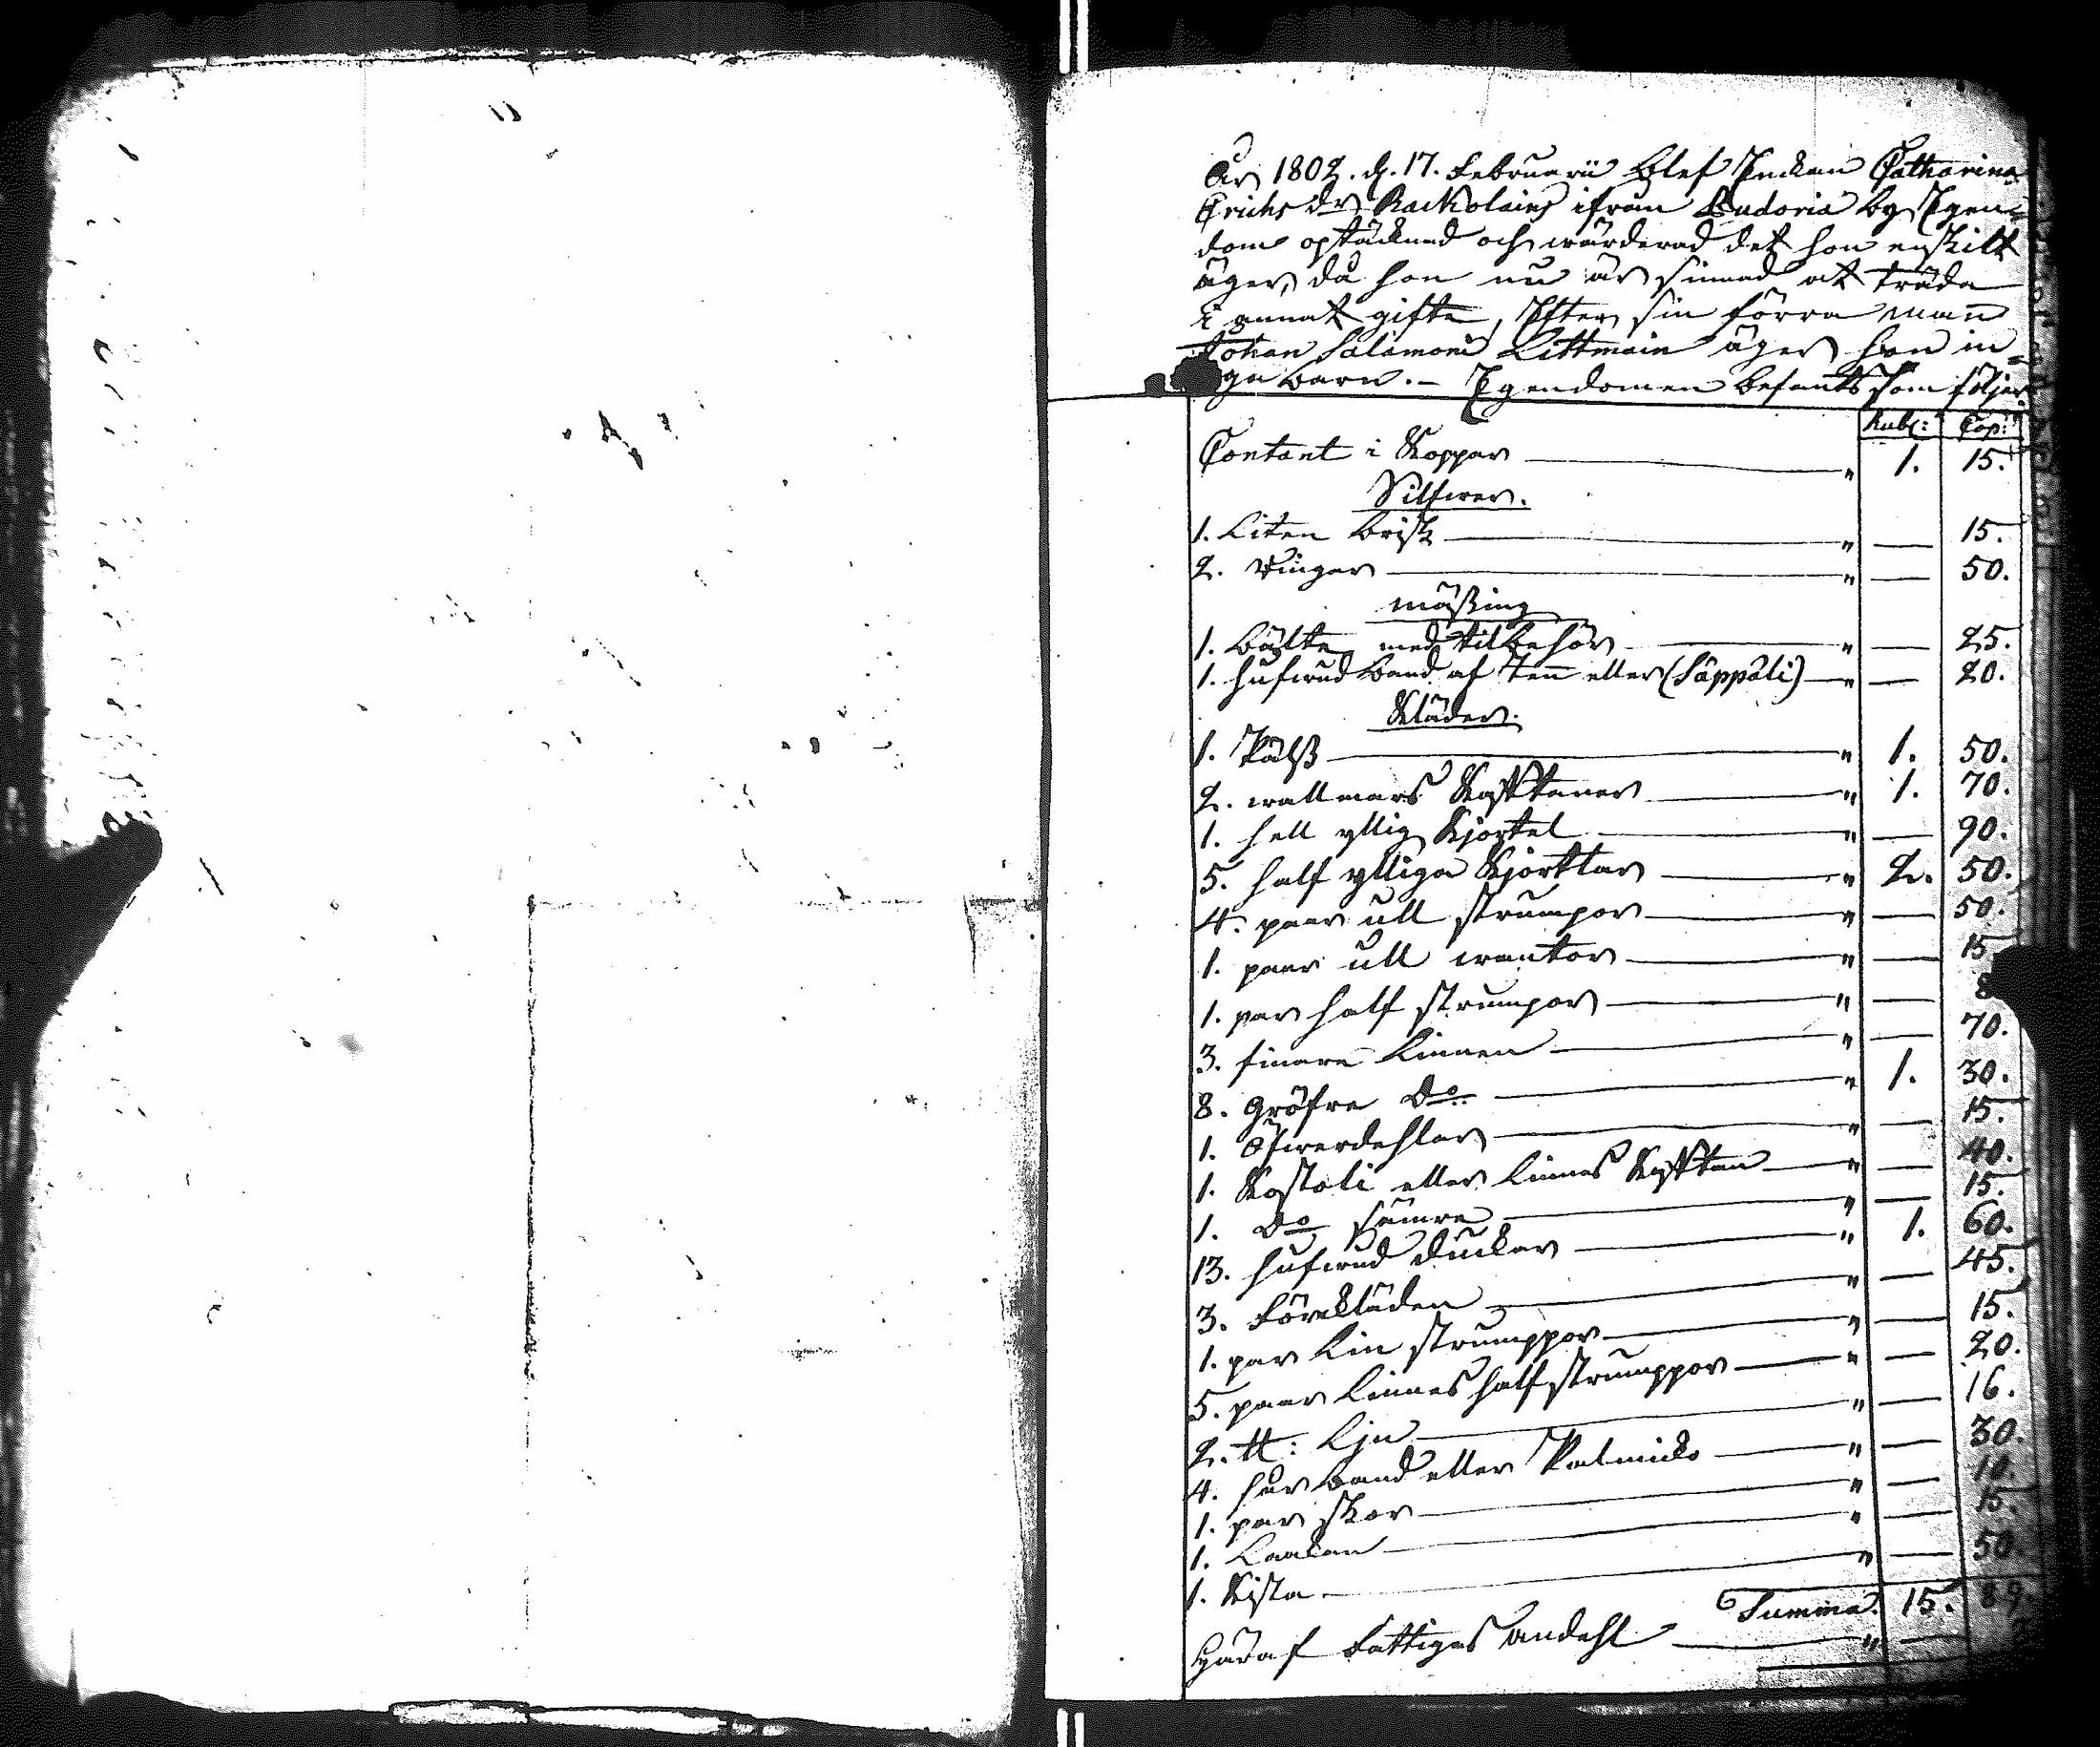 År 1802. d. 17. Februarii blef Enckan Catharina
Erichs dr Rackolains ifrån Pudoria by Egen=
dom optäcknad och wärderad det hon enskilt
äger, då hon nu är sinnad at träda
i annat gifte, Efter sin förra man
Johan Salamons Littmain äger hon in=
ga barn. – Egendomen befants som följer
Rubl: Cop:
Contant i Koppar " 1. 15.
Silfwer.
1. Liten brisk " — 15.
2. Ringar " — 50.
mässing
1. bälte med tilbehör " — 25.
1. hufwud band af Tenn eller (Säppäli) " — 20.
Kläder.
1. Päls " 1. 50.
2. wallmars Kofftaner " 1. 70.
1. hell yllig Kjortel " — 90.
5. half ylliga Kjorttlar " 2. 50.
4. paar ull strumpor " — 50.
1. paar ull wantor " — 15
1. par half strumpor " — 8
3. finare Linnen " — 70.
8. gröfre Do " 1. 30.
1. Öfwerdehlar " — 15.
1. Kostoli eller Linnes Kofftan " — 40.
1. Do sämre " — 15.
13. hufwud dückar " 1. 60.
3. Förekläden " — 45.
1. par Lin strumppor " — 15.
5. paar Linnes half strumppor " — 20.
2. ℔: Lin " — 16.
4. hår band eller Palmicko " — 30.
1. par skor " — 10.
1. Laakan " — 15.
1. Kista " — 50.
Summa. 15. 89.
Häraf Fattiges andehl " —